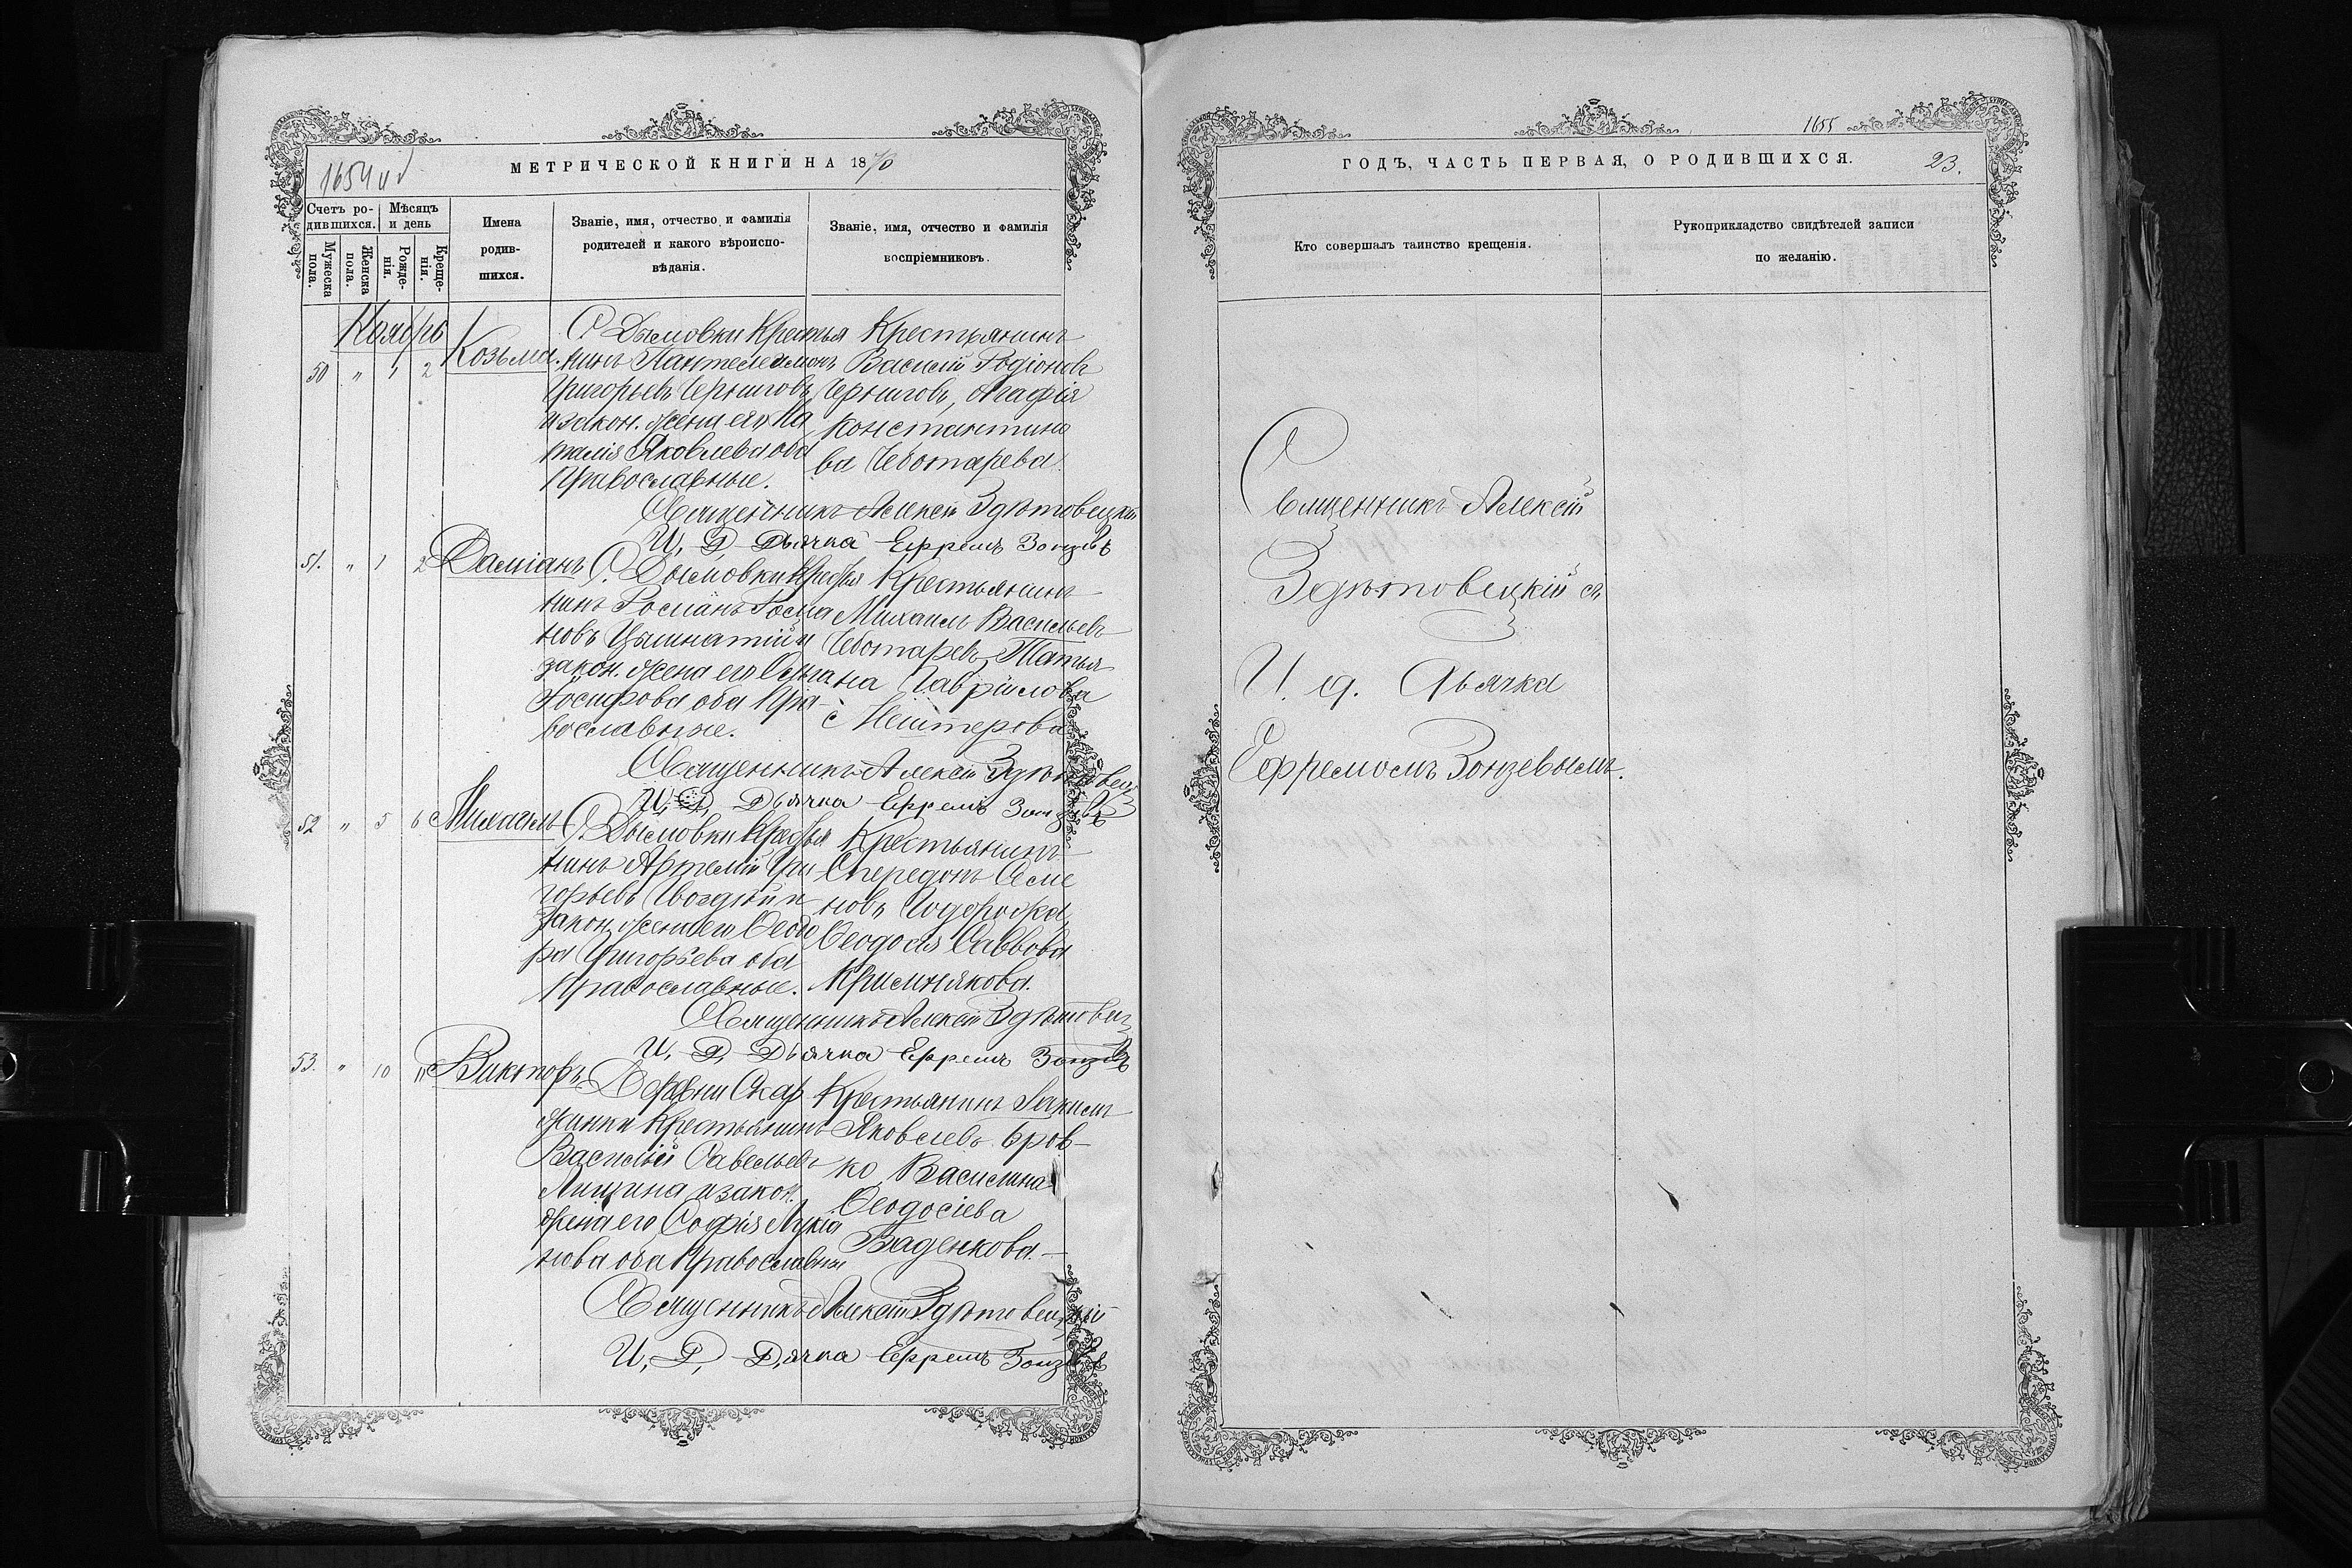 1654 и д
МЕТРИЧЕСКОЙ КНИГИ НА 1870
Счетъ ро-
дившихся.
Мѣсяцъ
и день
Мужеска
пола.
Женска
пола.
Рожде-
нія.
Креще-
нія.
Имена
родив-
шихся.
Званіе, имя, отчество и фамилія
родителей и какого вѣроиспо-
вѣданія.
Званіе, имя, отчество и фамилія
воспріемниковъ.
Ноябрь
50 " 1 2
Козьма.
С. Дымовки Крестья
нинъ Пантелеимонъ
Григорьевъ Черниговъ
и закон. жена его На
талія Яковлева оба
Православные.
Крестьянинъ
Василій Родіоновъ
Черниговъ, Агафія
Константино
ва Чеботарева
Священникъ Алексѣй Здѣтовецкій
И. Д. Дьячка Ефремъ Зонзевъ
51. " 1 2
Даміанъ
С. Дымовки Крестья
нинъ Романъ Рома
новъ и
закон. жена его
Іосифова оба Пра-
вославные.
Крестьянинъ
Михаилъ Васильевъ
Чеботаревъ, Татья
на Гавріилова
Священникъ Алексѣй Здѣтовец
И. Д. Дьячка Ефремъ Зонзевъ
52 " 5 6
Михаилъ
С. Дымовки Крестья
нинъ Артемій Гри
горьевъ и
закон. жена его Ѳеодо
ра Григорьева оба
Православные.
Крестьянинъ
Спередонъ Семе
новъ
Ѳеодосія Саввова
Священникъ Алексѣй Здѣтовец
И. Д. Дьячка Ефремъ Зонзевъ
53. " 10 11
Викторъ
Деревни Скар
жинки Крестьянинъ
Василій Савельевъ
и закон.
жена его Софія Лукіа
нова оба Православны
Крестьянинъ
Яковлевъ Бров-
ко, Василина
Ѳеодосіева
Ваденкова.
Священникъ Алексѣй Здѣтовецкій
И. Д. Дьячка Ефремъ Зонзевъ
1655
ГОДЪ, ЧАСТЬ ПЕРВАЯ, О РОДИВШИХСЯ.
23.
Кто совершалъ таинство крещенія.
Рукоприкладство свидѣтелей записи
по желанію.
Священникъ Алексѣй
Здѣтовецкій съ
И. д. Дьячка
Ефремомъ Зонзевымъ.